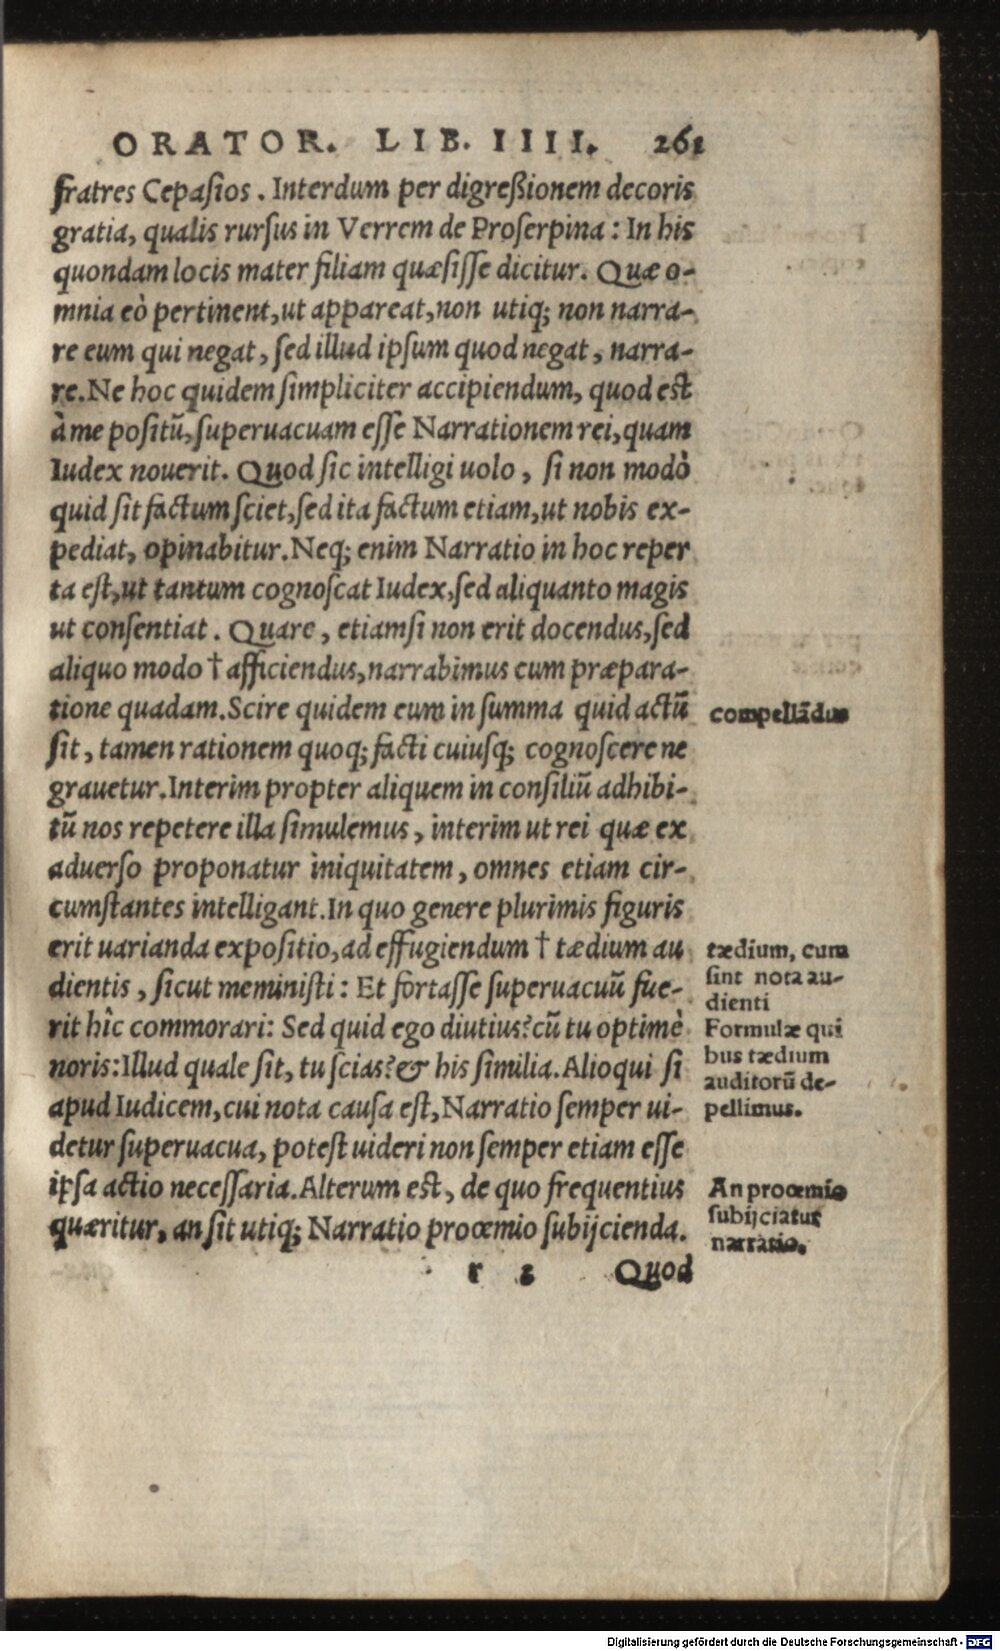 ORATOR. LIB. IIII. 261
fratres Cepaſios. Interdum per digreßionem decoris
gratia, qualis rurſus in Verrem de Proſerpina: In his
quondam locis mater filiam quæſiſſe dicitur. Quæ o-
mnia eò pertinent, ut appareat, non utiq; non narra-
re eum qui negat, ſed illud ipſum quod negat, narra-
re. Ne hoc quidem ſimpliciter accipiendum, quod eſt
à me poſitũ, ſuperuacuam eſſe Narrationem rei, quam
Iudex nouerit. Quod ſic intelligi uolo, ſi non modò
quid ſit factum ſciet, ſed ita factum etiam, ut nobis ex-
pediat, opinabitur. Neq; enim Narratio in hoc reper
ta eſt, ut tantum cognoſcat Iudex, ſed aliquanto magis
ut conſentiat. Quare, etiamſi non erit docendus, ſed
aliquo modo † afficiendus, narrabimus cum præpara-
tione quadam. Scire quidem eum in ſumma quid actũ
ſit, tamen rationem quoq; facti cuiuſq; cognoſcere ne
grauetur. Interim propter aliquem in conſiliũ adhibi-
tũ nos repetere illa ſimulemus, interim ut rei quæ ex
aduerſo proponatur iniquitatem, omnes etiam cir-
cumſtantes intelligant. In quo genere plurimis figuris
erit uarianda expoſitio, ad effugiendum † tædium au
dientis, ſicut meminiſti: Et fortaſſe ſuperuacuũ fue-
rit hîc commorari: Sed quid ego diutius? cũ tu optimè
noris: Illud quale ſit, tu ſcias? & his ſimilia. Alioqui ſi
apud Iudicem, cui nota cauſa eſt, Narratio ſemper ui-
detur ſuperuacua, poteſt uideri non ſemper etiam eſſe
ipſa actio neceſſaria. Alterum eſt, de quo frequentius
quæritur, an ſit utiq; Narratio proœmio ſubijcienda.
r 2 Quod
compellãdus
tædium, cum
ſint nota au-
dienti
Formulæ qui
bus tædium
auditorũ de-
pellimus.
An proœmio
ſubijciatur
narratio.
Digitalisierung gefördert durch die Deutsche Forschungsgemeinschaft - DFG